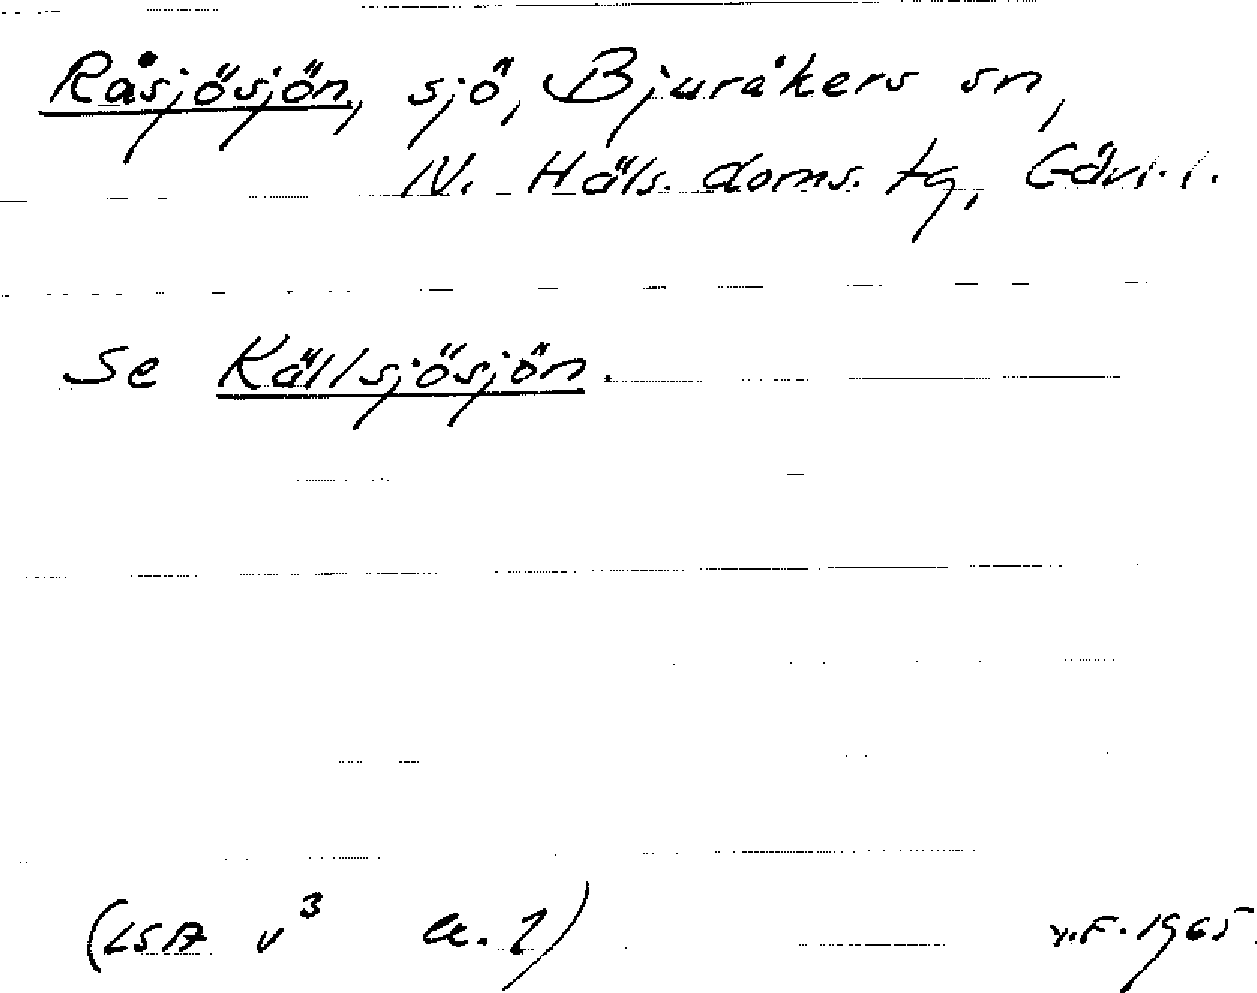 Råsjösjön, sjö, Bjuråkers sn,
N. Häls. doms. tg, Gävl. l.
Se Källsjösjön.
(LSA v³ a. 2) v.F. 1965